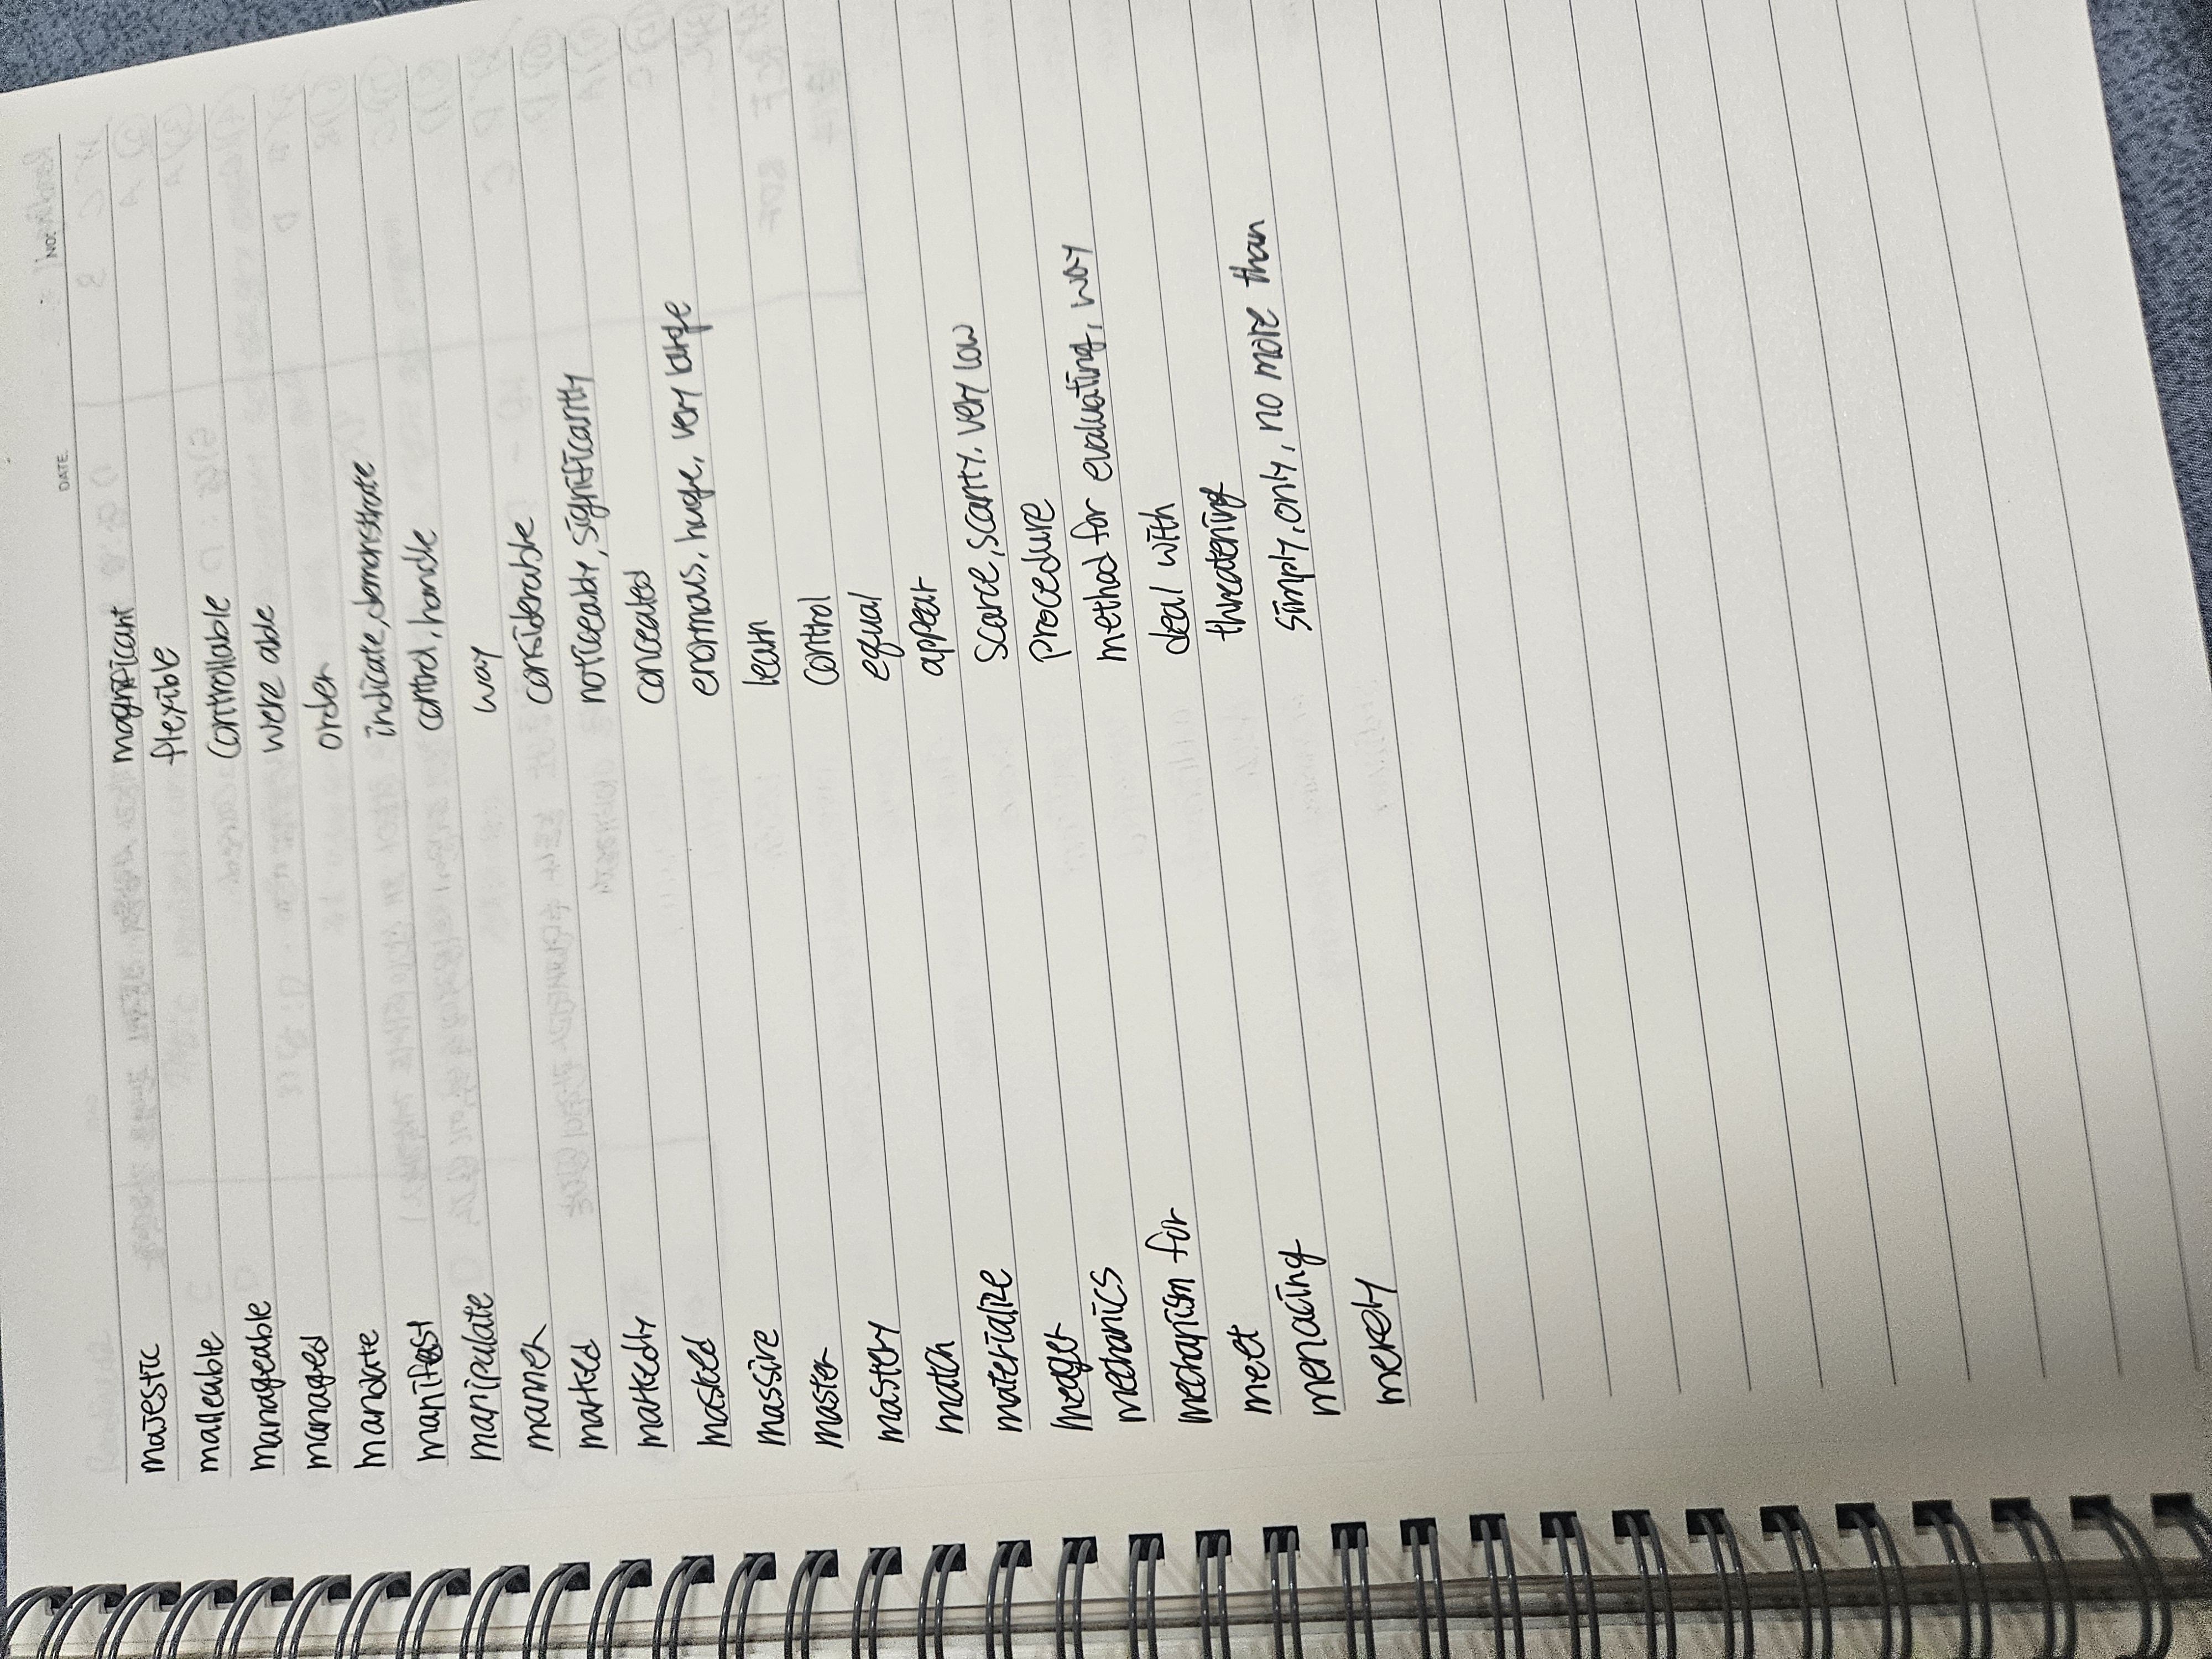 DATE. NO.
majestic magnificant
malleable flexible
manageable controllable
managed were able
mandate order
manifest indicate, demonstrate
manipulate control, handle
manner way
marked considerable
markedly noticeably, significantly
masked concealed
massive enormous, huge, very large
master learn
mastery control
match equal
materialize appear
meager scarce, scanty, very low
mechanics procedure
mechanism for method for evaluating, way
meet deal with
menacing threatening
merely simply, only, no more than